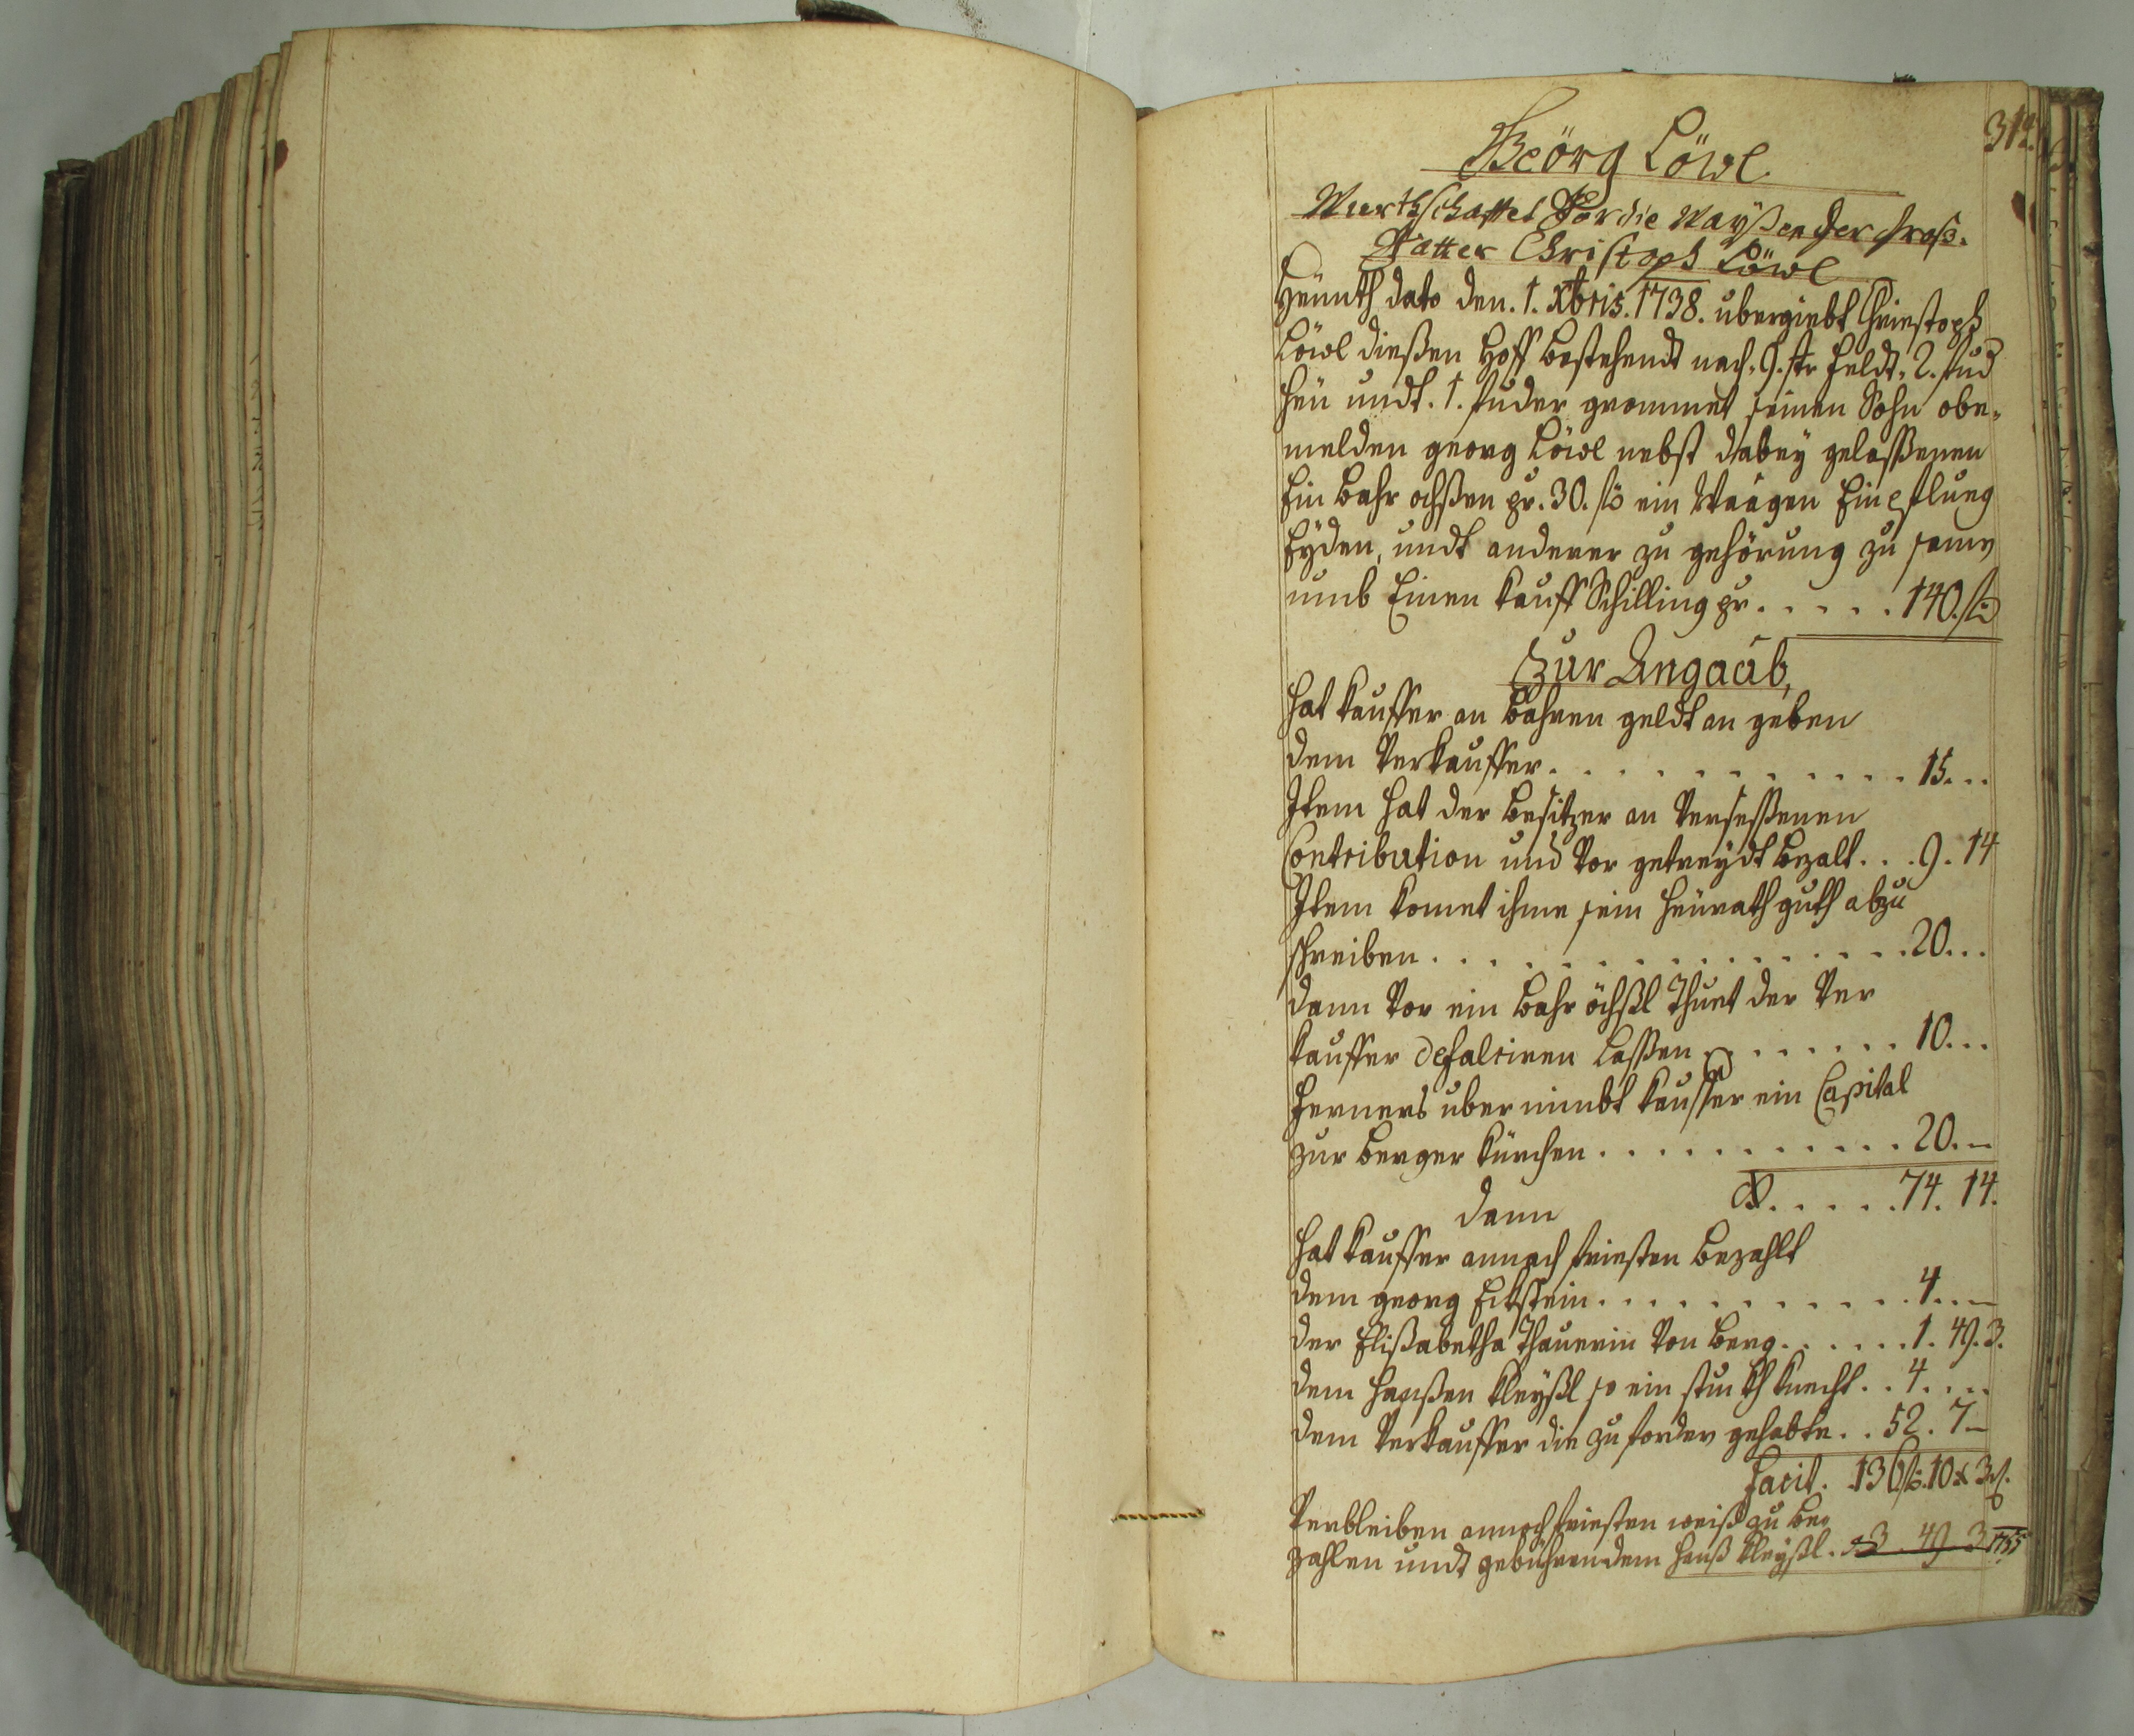 314.
Geörg Löwl
Würthschafftet Vor die Waÿßen der Groß-
Vatter Christoph Löwl
Heunth dato den. 1. Xbris. 1738. übergiebt Christoph
Löwl dießen Hoff bestehendt nach. 9. str Feldt, 2. fud
heü undt. 1. fuder grommet seinen Sohn obe-
melden georg Löwl nebst dabeÿ gelaßenen
Ein bahr ochßen pr. 30. fl ein Waagen Ein pflueg
Eÿden, undt anderer zu gehörung zu
umb Einen kauff Schilling pr. . . . . . 140. fl
Zur Angaab,
hat kauffer an bahren geldt an geben
dem Verkauffer. . . . . . . . . . . . 15. . .
Item hat der besitzer an Verseßenen
Contribution und Vor getreÿdt bezalt. . . 9. 14
Item komet ihme sein heürath guth abzu
schreiben. . . . . . . . . . . . . . . . 20. . .
dann Vor ein bahr öchßl Thuet der Ver
kauffer defalciren laßen . . . . . . . 10. . .
ferners über nimbt kauffer ein Capital
zur berger kürchen. . . . . . . . . . . 20. –
. . . . . 74. 14.
dann
hat kauffer annoch friesten bezahlt
dem georg Eckstein. . . . . . . . . . . 4. . –
der Elißabetha Thauerin Von berg. . . . . . 1. 49. 3.
dem hanßen kleÿßl so ein stuckh knecht. . 4. . . .
dem Verkauffer die zu forder gehabte. . 52. 7 –
Facit. 136 fl. 10 x 3 d.
Verbleiben annoch friesten weiß zu be-
zahlen undt gebühren dem hanß kleÿßl. 3 49 3 1755